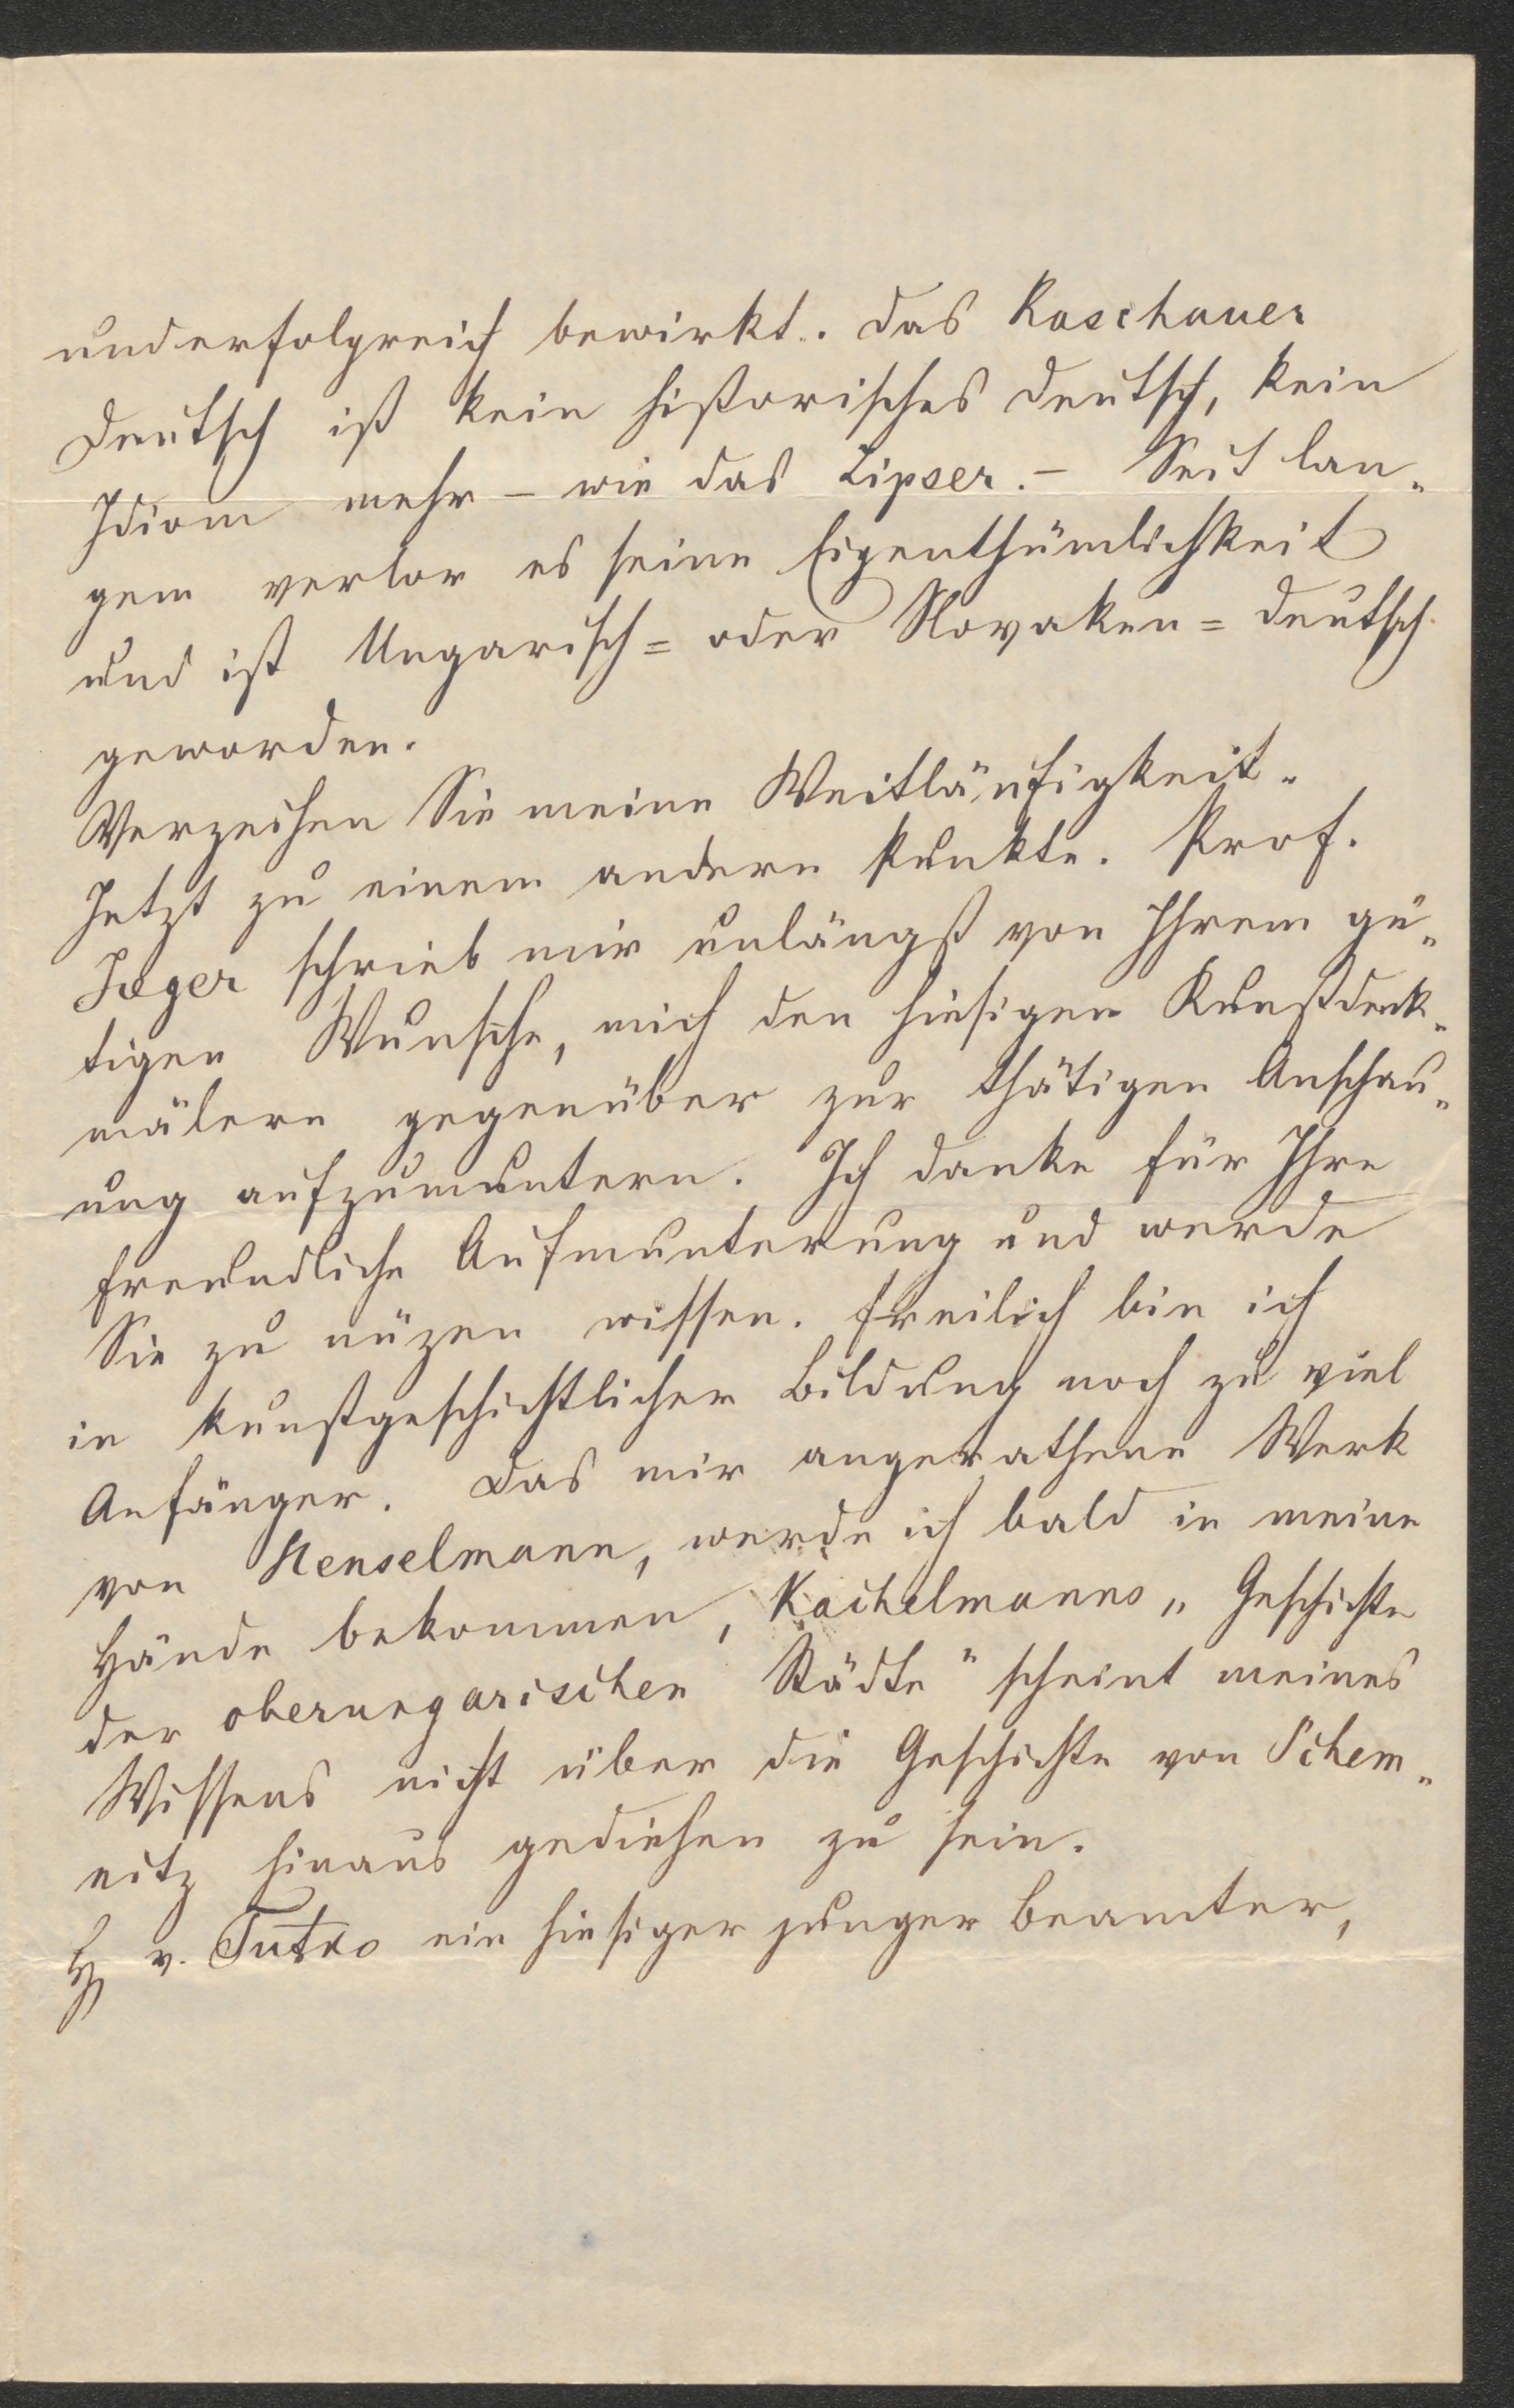 und erfolgreich bewirkt. Das Kaschauer
Deutsch ist kein historisches Deutsch, kein
Idiom mehr – wie das Zipser. – Seit lan„
gem verlor es seine Eigenthümlichkeit
und ist Ungarisch= oder Slovaken=Deutsch
geworden.
Verzeihen Sie meine Weitläufigkeit.
Jetzt zu einem andern Punkte. Prof.
Jæger schrieb mir unlängst von Ihrem gü„
tigen Wunsche, mich den hiesigen Kunstdenk„
mälern gegenüber zur thätigen Anschau„
ung aufzumuntern. Ich danke für Ihre
freundliche Aufmunterung und werde
Sie zu nüzen wissen. Freilich bin ich
in kunstgeschichtlicher Bildung noch zu viel
Anfänger. Das mir angerathene Werk
von Henselmann, werde ich bald in meine
Hände bekommen, Kachelmanns „Geschichte
der oberungarischen Städte" scheint meines
Wissens nicht über die Geschichte von Schem„
nitz hinaus gediehen zu sein.
H v. Tutko ein hiesiger junger Beamter,